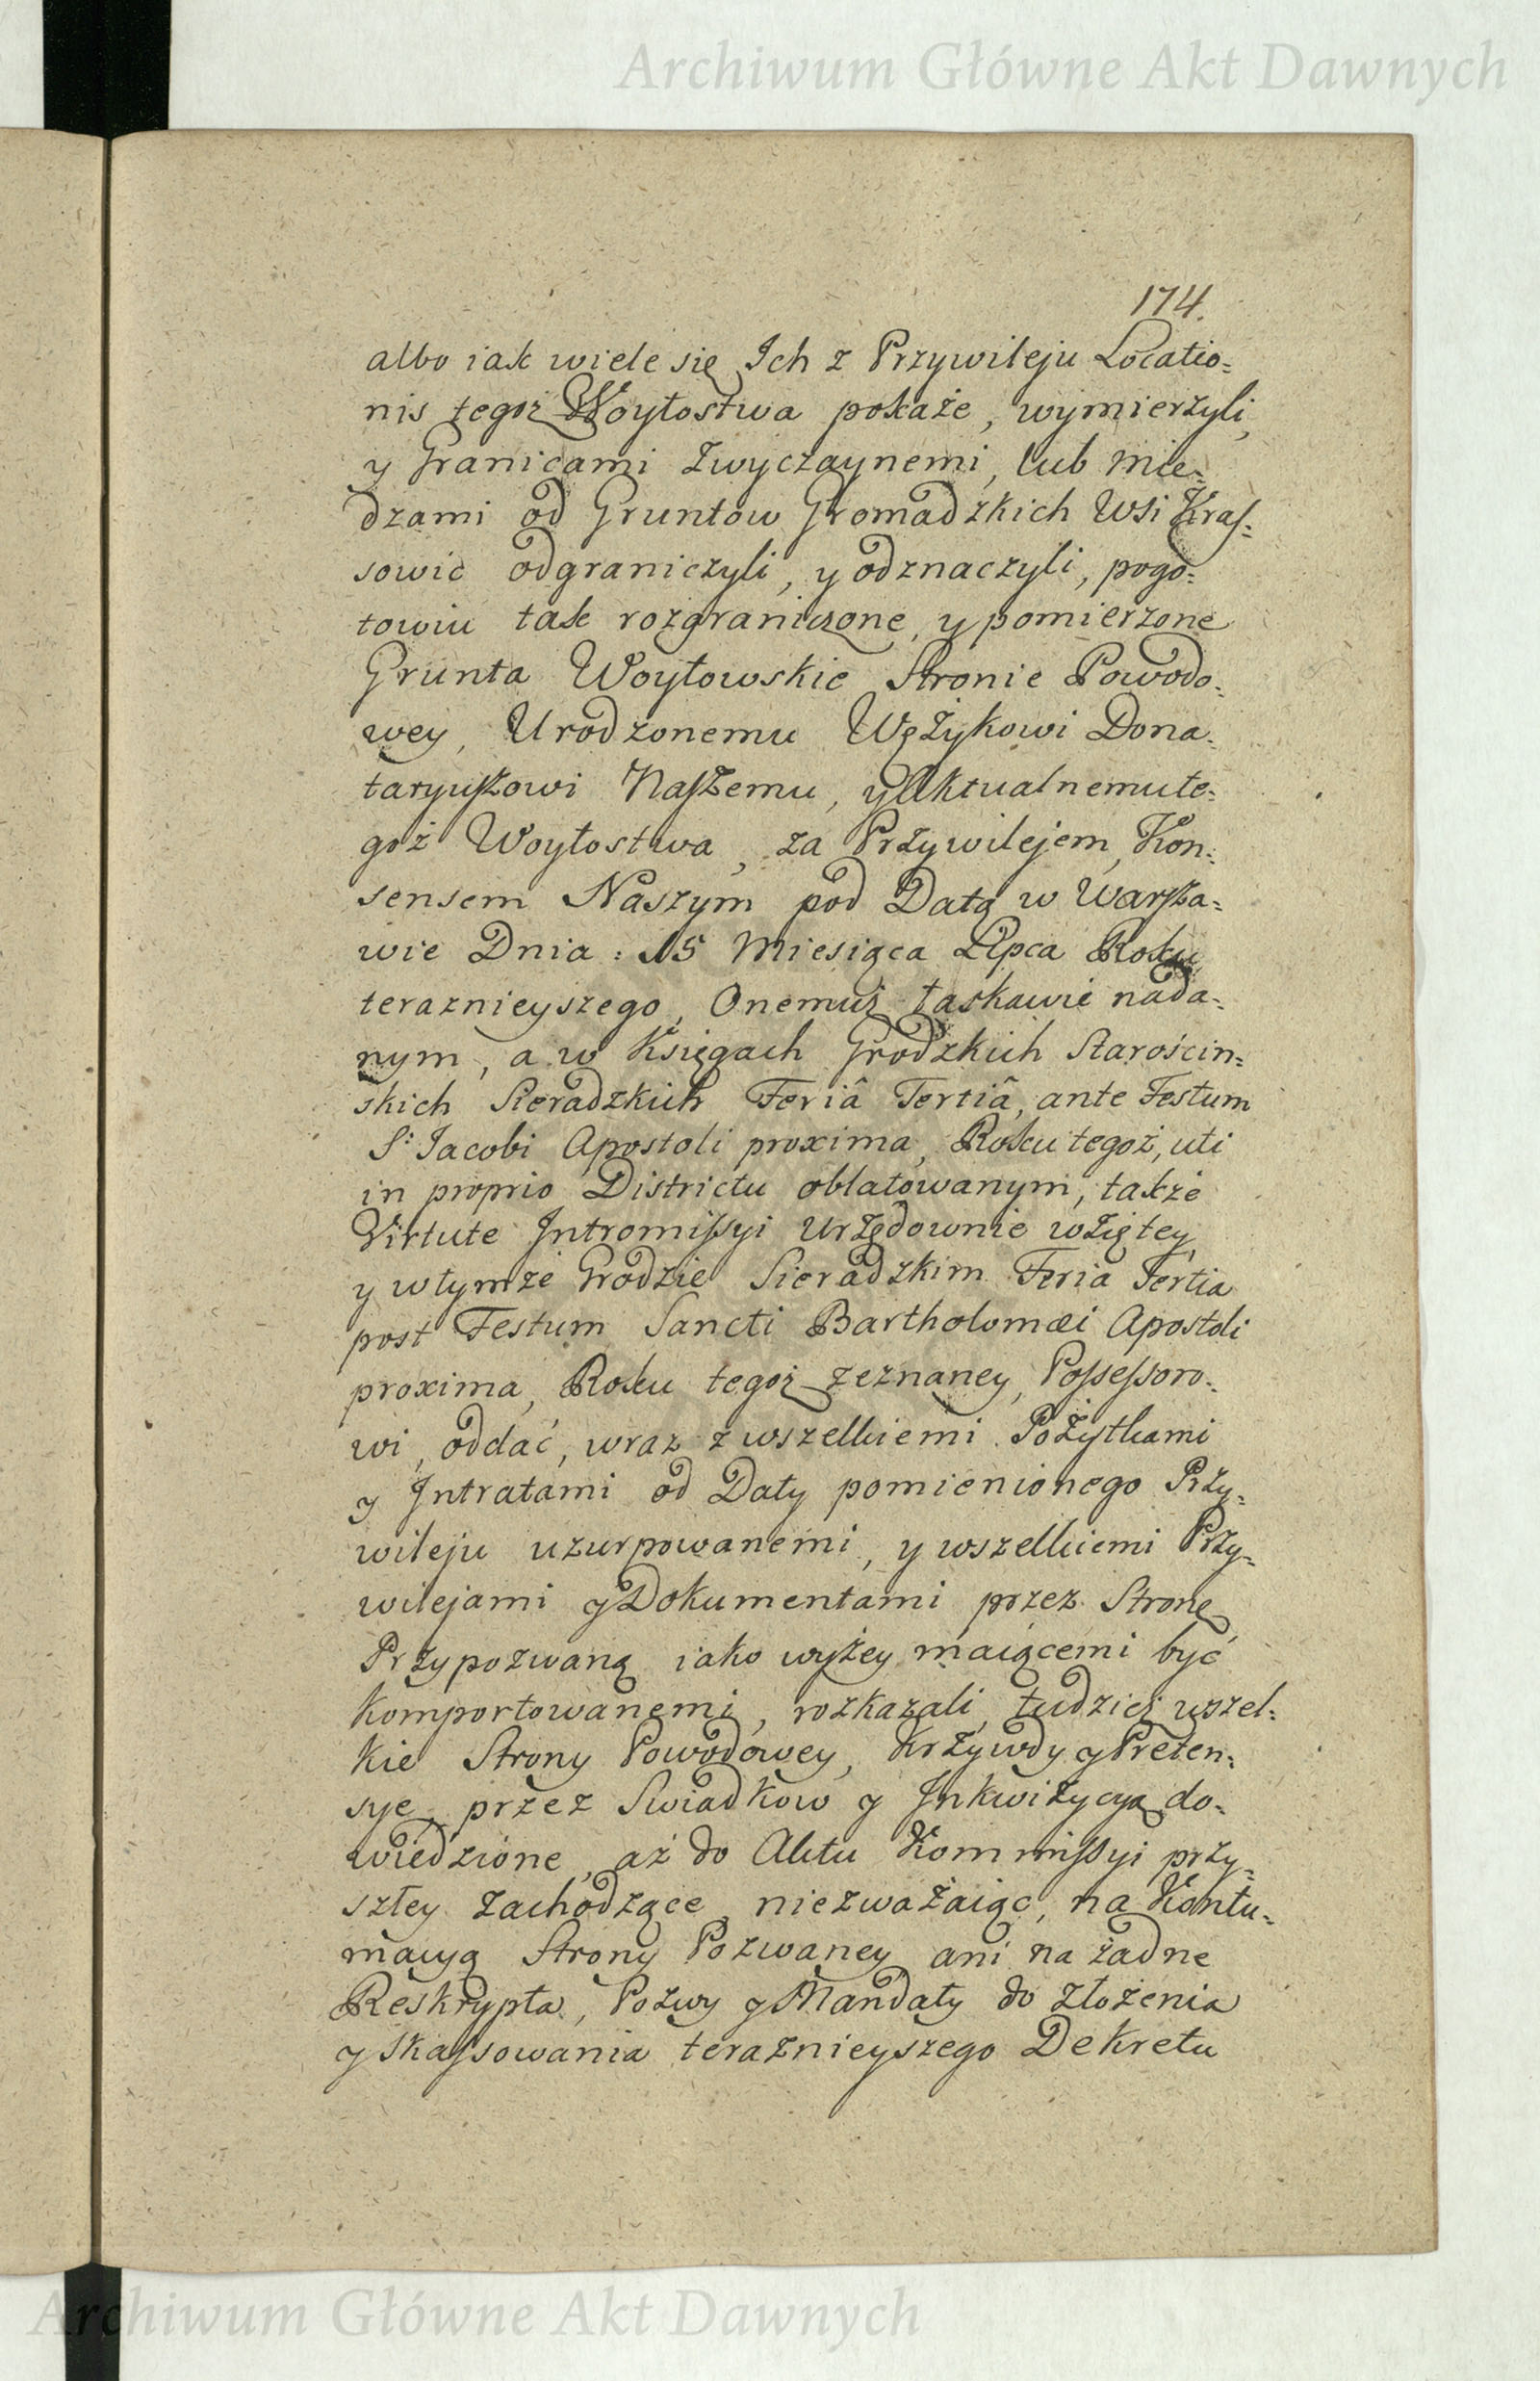 Archiwum Główne Akt Dawnych
174.
albo iak wiele się Ich z Przywileju Locatio=
nis tegoż Woytostwa pokaże, wymierzyli,
y Granicami Zwyczaynemi, lub mie=
dzami od Gruntow Gromadzkich Wsi Kras=
sowic odgraniczyli, y odznaczyli, pogo=
towiu tak rozgraniczone, y pomierzone
Grunta Woytowskie Stronie Powodo=
wey, Urodzonemu Wężykowi Dona=
taryuszowi Naszemu, y Aktualnemu te=
goż Woytostwa, za Przywilejem, Kon=
sensem Naszym pod Datą w Warsza=
wie Dnia: 15 Miesiąca Lipca Roku
teraznieyszego, Onemuż łaskawie nada=
nym, a w Księgach Grodzkich Starościn=
skich Sieradzkich Feriâ Tertiâ, ante Festum
S: Jacobi Apostoli proxima, Roku tegoż, uti
in proprio Districtu oblatowanym, także
Virtute Intromissyi Urzędownie wziętey,
y w tymże Grodzie Sieradzkim Feria Tertia
post Festum Sancti Bartholomæi Apostoli
proxima, Roku tegoż zeznaney, Possessoro=
wi, oddać, wraz z wszelkiemi Pożytkami
y Intratami od Daty pomienionego Przy=
wileju uzurpowanemi, y wszelkiemi Przy=
wilejami y Dokumentami przez Stronę
Przypozwaną iako wyżey maiącemi być
komportowanemi, rozkazali, tudzież wszel=
kie Strony Powodowey, Krzywdy y Preten=
sye, przez Swiadkow y Inkwizycyą do=
wiedzione, aż do Aktu Kommissyi przy=
szłey zachodzące, niezważaiąc, na Kontu=
macyą Strony Pozwaney ani na żadne
Reskrypta, Pozwy y Mandaty do złożenia
y skassowania teraznieyszego Dekretu
Archiwum Główne Akt Dawnych